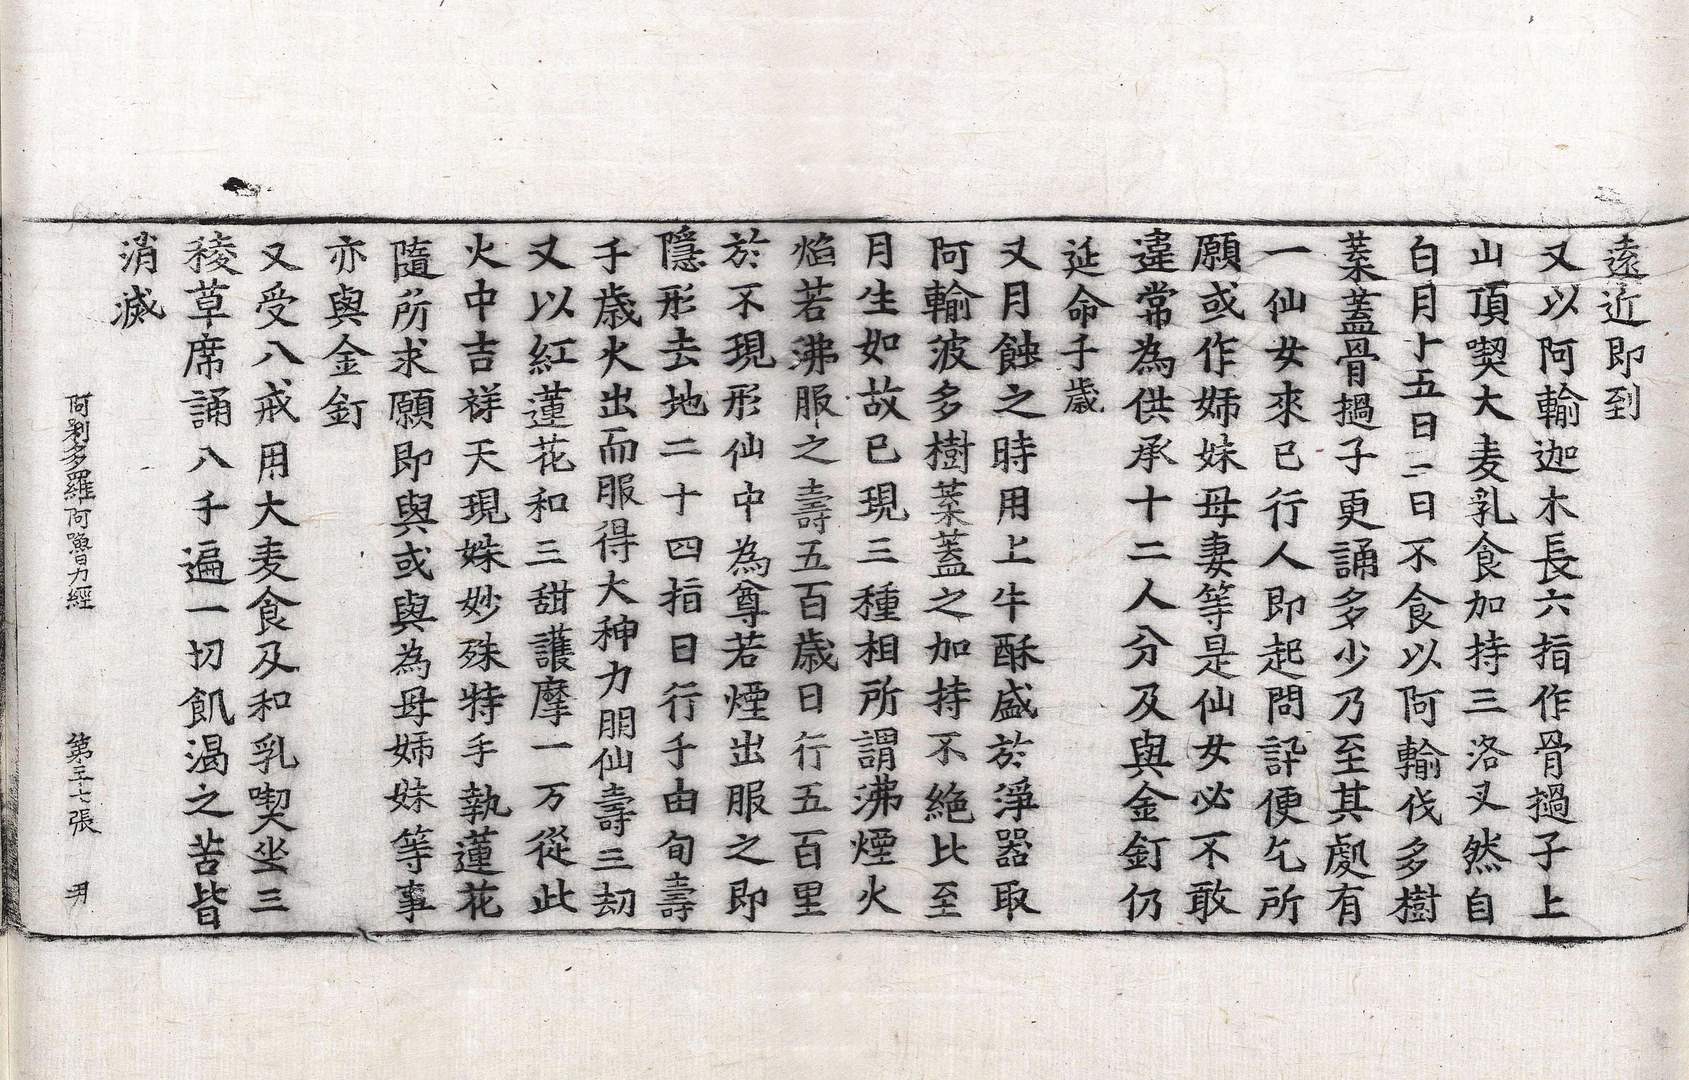 遠近即到
又以阿輸迦木長六指作骨撾子上
山頂喫大麦乳食加持三洛叉然自
白月十五日二日不食以阿輸伐多樹
葉蓋骨撾子更誦多少乃至其處有
一仙女來已行人即起問訊便乞所
願或作姉妹母妻等是仙女必不敢
違常為供承十二人分及與金釘仍
延命千歲
又月蝕之時用上牛酥盛於淨器取
阿輸波多樹葉蓋之加持不絕比至
月生如故已現三種相所謂沸煙火
焰若沸服之壽五百歲日行五百里
於不現形仙中為尊若煙出服之即
隱形去地二十四指日行千由旬壽
千歲火出而服得大神力朋仙壽三劫
又以紅蓮花和三甜護摩一万從此
火中吉祥天現姝妙殊特手執蓮花
隨所求願即與或與為母姉妹等事
亦與金釘
又受八戒用大麦食及和乳喫坐三
稜草席誦八千遍一切飢渴之苦皆
消滅
阿利多羅阿嚕力經 第三十七張 尹